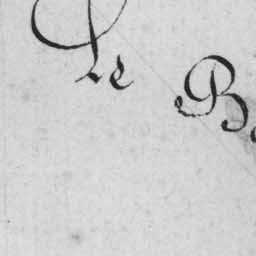 Le B